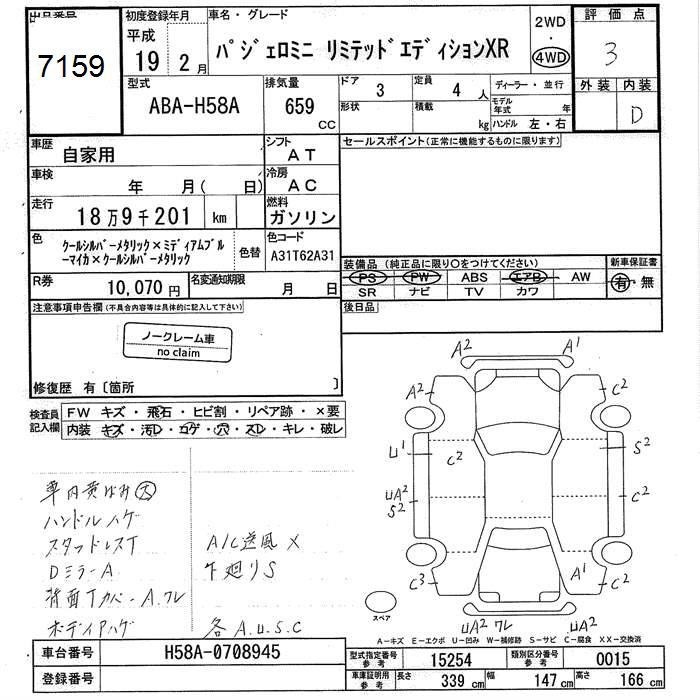 出品番号
7159
初度登録年月
平成
19 2月
車名・グレード
パジェロミニ リミテッドエディションXR
2WD
・
4WD
評価点
3
外装 内装
D
型式
ABA-H58A
排気量
659
CC
ドア
3
形状
定員
4 人
積載
kg
ディーラー・並行
モデル年式 年
ハンドル 左・右
車歴
自家用
シフト
AT
車検
年 月( 日)
冷房
AC
走行
18万9千201 km
燃料
ガソリン
色
クールシルバーメタリック×ミディアムブル
ーマイカ×クールシルバーメタリック
色替
色コード
A31T62A31
R券
10,070円
名変通知期限
月 日
セールスポイント(正常に機能するものに限ります)
装備品(純正品に限り○をつけてください)
PS PW ABS エアB AW
SR ナビ TV カワ
新車保証書
有・無
後日品
注意事項申告欄(不具合内容等は具体的に記入して下さい)
ノークレーム車
no claim
修復歴 有〔箇所 〕
検査員
記入欄
FW キズ・飛石・ヒビ割・リペア跡・×要
内装 キズ・汚D・コゲ・穴・スレ・キレ・破レ
車内黄ばみ大
ハンドルハゲ
スタッドレスT
DミラーA
背面TカバーA.ワレ
ボディアハゲ
A/C送風×
下廻りS
各A.U.S.C
A2 A1
A2 C2
U1 C2 S2
UA2 C2 C2
S2
C3 A1 C2
UA2 ワレ UA2
スペア
A-キズ E-エクボ U-凹み W-補修跡 S-サビ C-腐食 XX-交換済
車台番号
H58A-0708945
登録番号
型式指定番号
参考
15254
類別区分番号
参考
0015
車庫証明用
参考
長さ 339 cm
幅 147 cm
高さ 166 cm